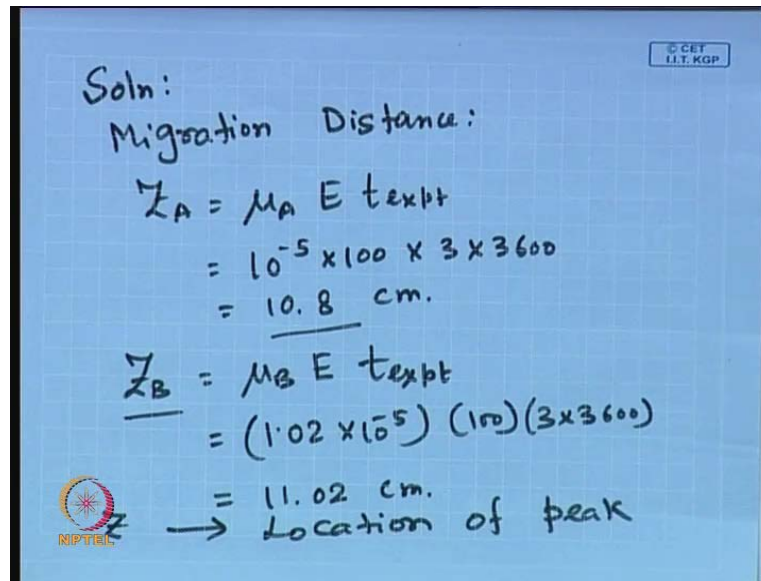 © CET
I.I.T. KGP
Soln:
Migration Distance:
Z_A = μ_A E texpt
= 10^-5 × 100 × 3 × 3600
= 10.8 cm.
Z_B = μ_B E texpt
= (1.02 × 10^-5) (100) (3 × 3600)
= 11.02 cm.
Z → Location of peak
NPTEL